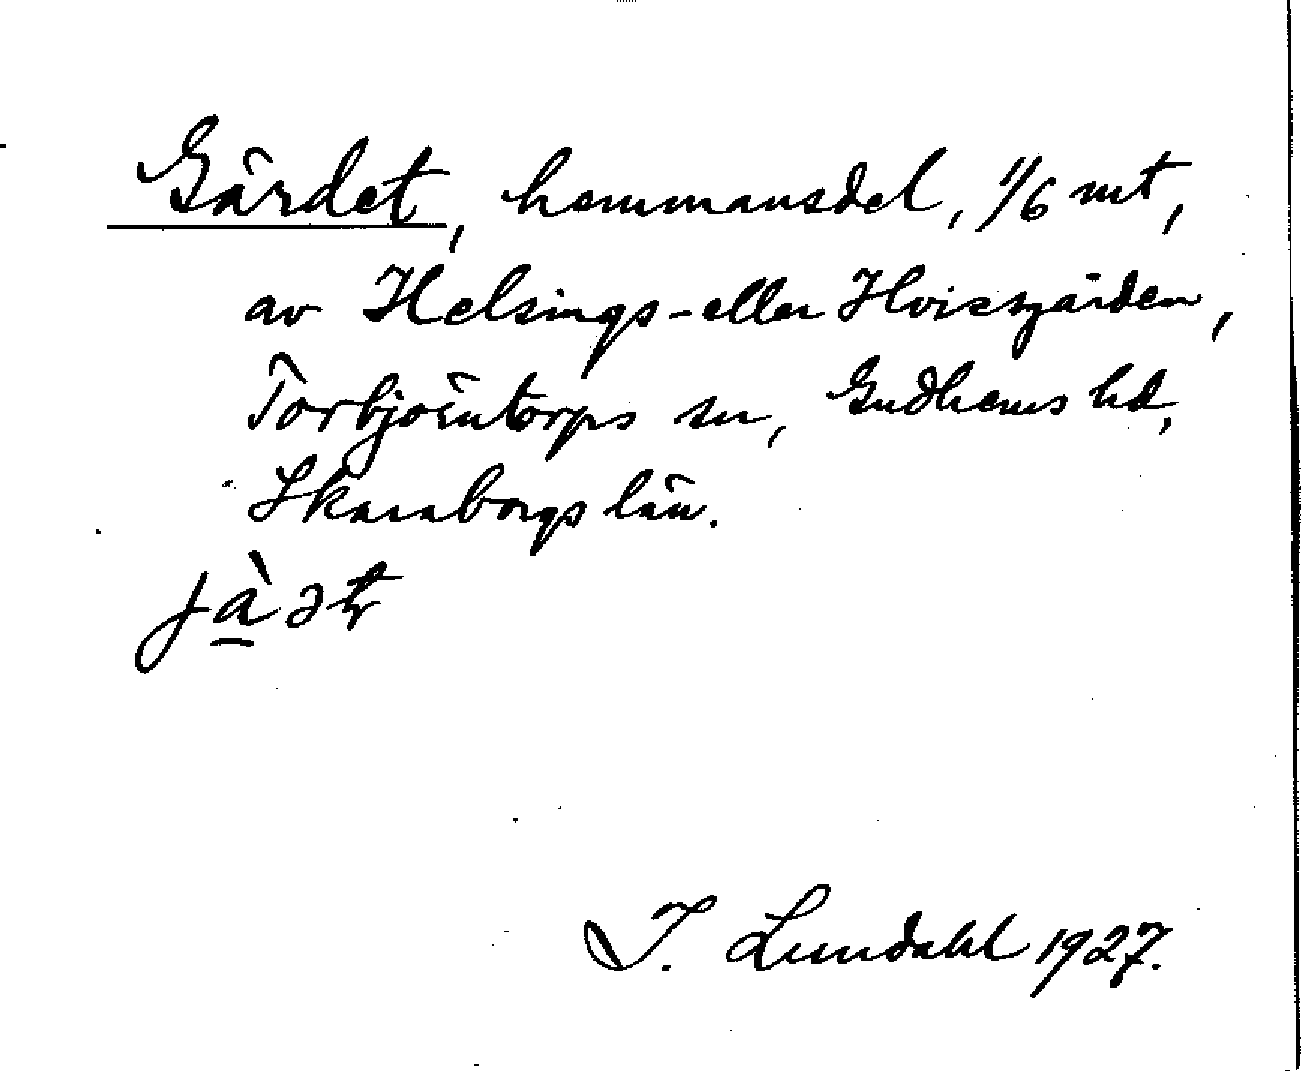 Gärdet, hemmansdel, 1/6 mt,
av Helsings- eller Hvissgärden,
Torbjörntorps sn, Gudhems hd,
Skaraborgs län.
I. Lundahl 1927.